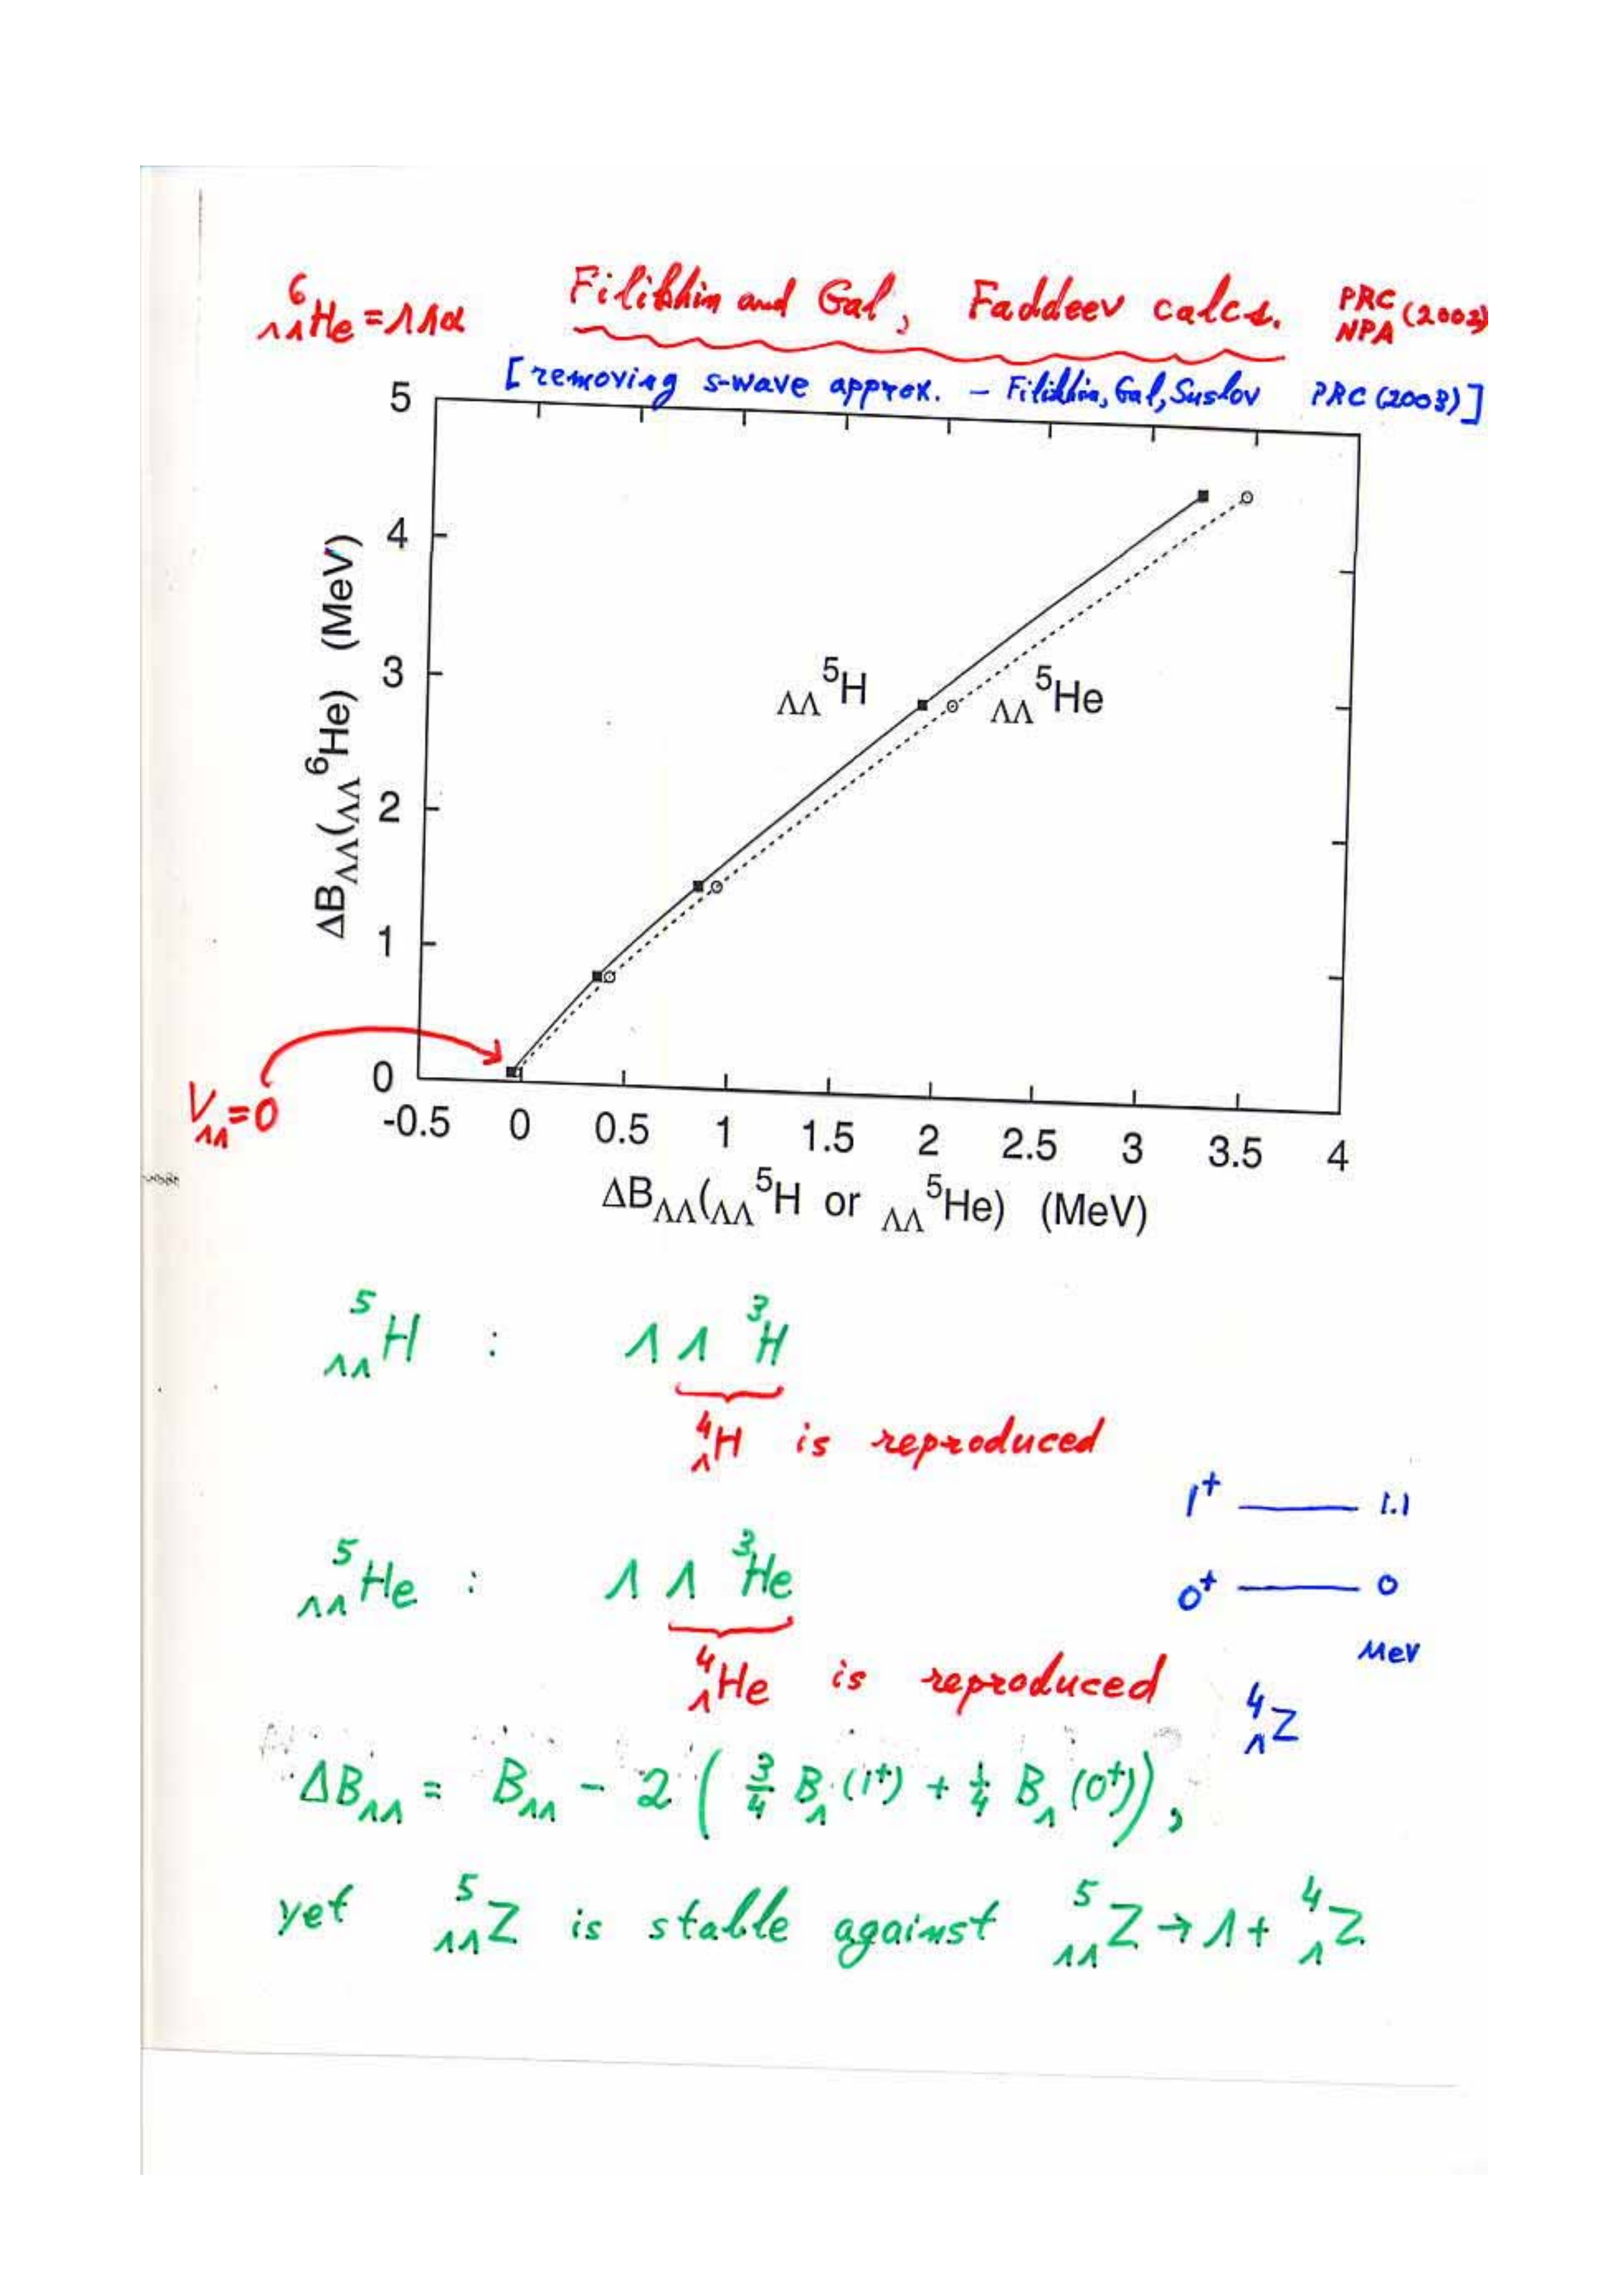 ⁶ΛΛHe = ΛΛα Filikhin and Gal, Faddeev calcs. PRC NPA (2002)
[removing s-wave approx. – Filikhin, Gal, Suslov PRC (2003)]
5
4
3
2
1
0
ΔB_ΛΛ(_ΛΛ⁶He) (MeV)
_ΛΛ⁵H
_ΛΛ⁵He
V_ΛΛ = 0
-0.5 0 0.5 1 1.5 2 2.5 3 3.5 4
ΔB_ΛΛ(_ΛΛ⁵H or _ΛΛ⁵He) (MeV)
⁵_ΛΛH : Λ Λ ³H
⁴_ΛH is reproduced
1⁺ 1.1
0⁺ 0
MeV
⁴_ΛZ
⁵_ΛΛHe : Λ Λ ³He
⁴_ΛHe is reproduced
ΔB_ΛΛ = B_ΛΛ – 2 ( ¾ B_Λ(1⁺) + ¼ B_Λ(0⁺) ),
yet ⁵_ΛΛZ is stable against ⁵_ΛΛZ → Λ + ⁴_ΛZ